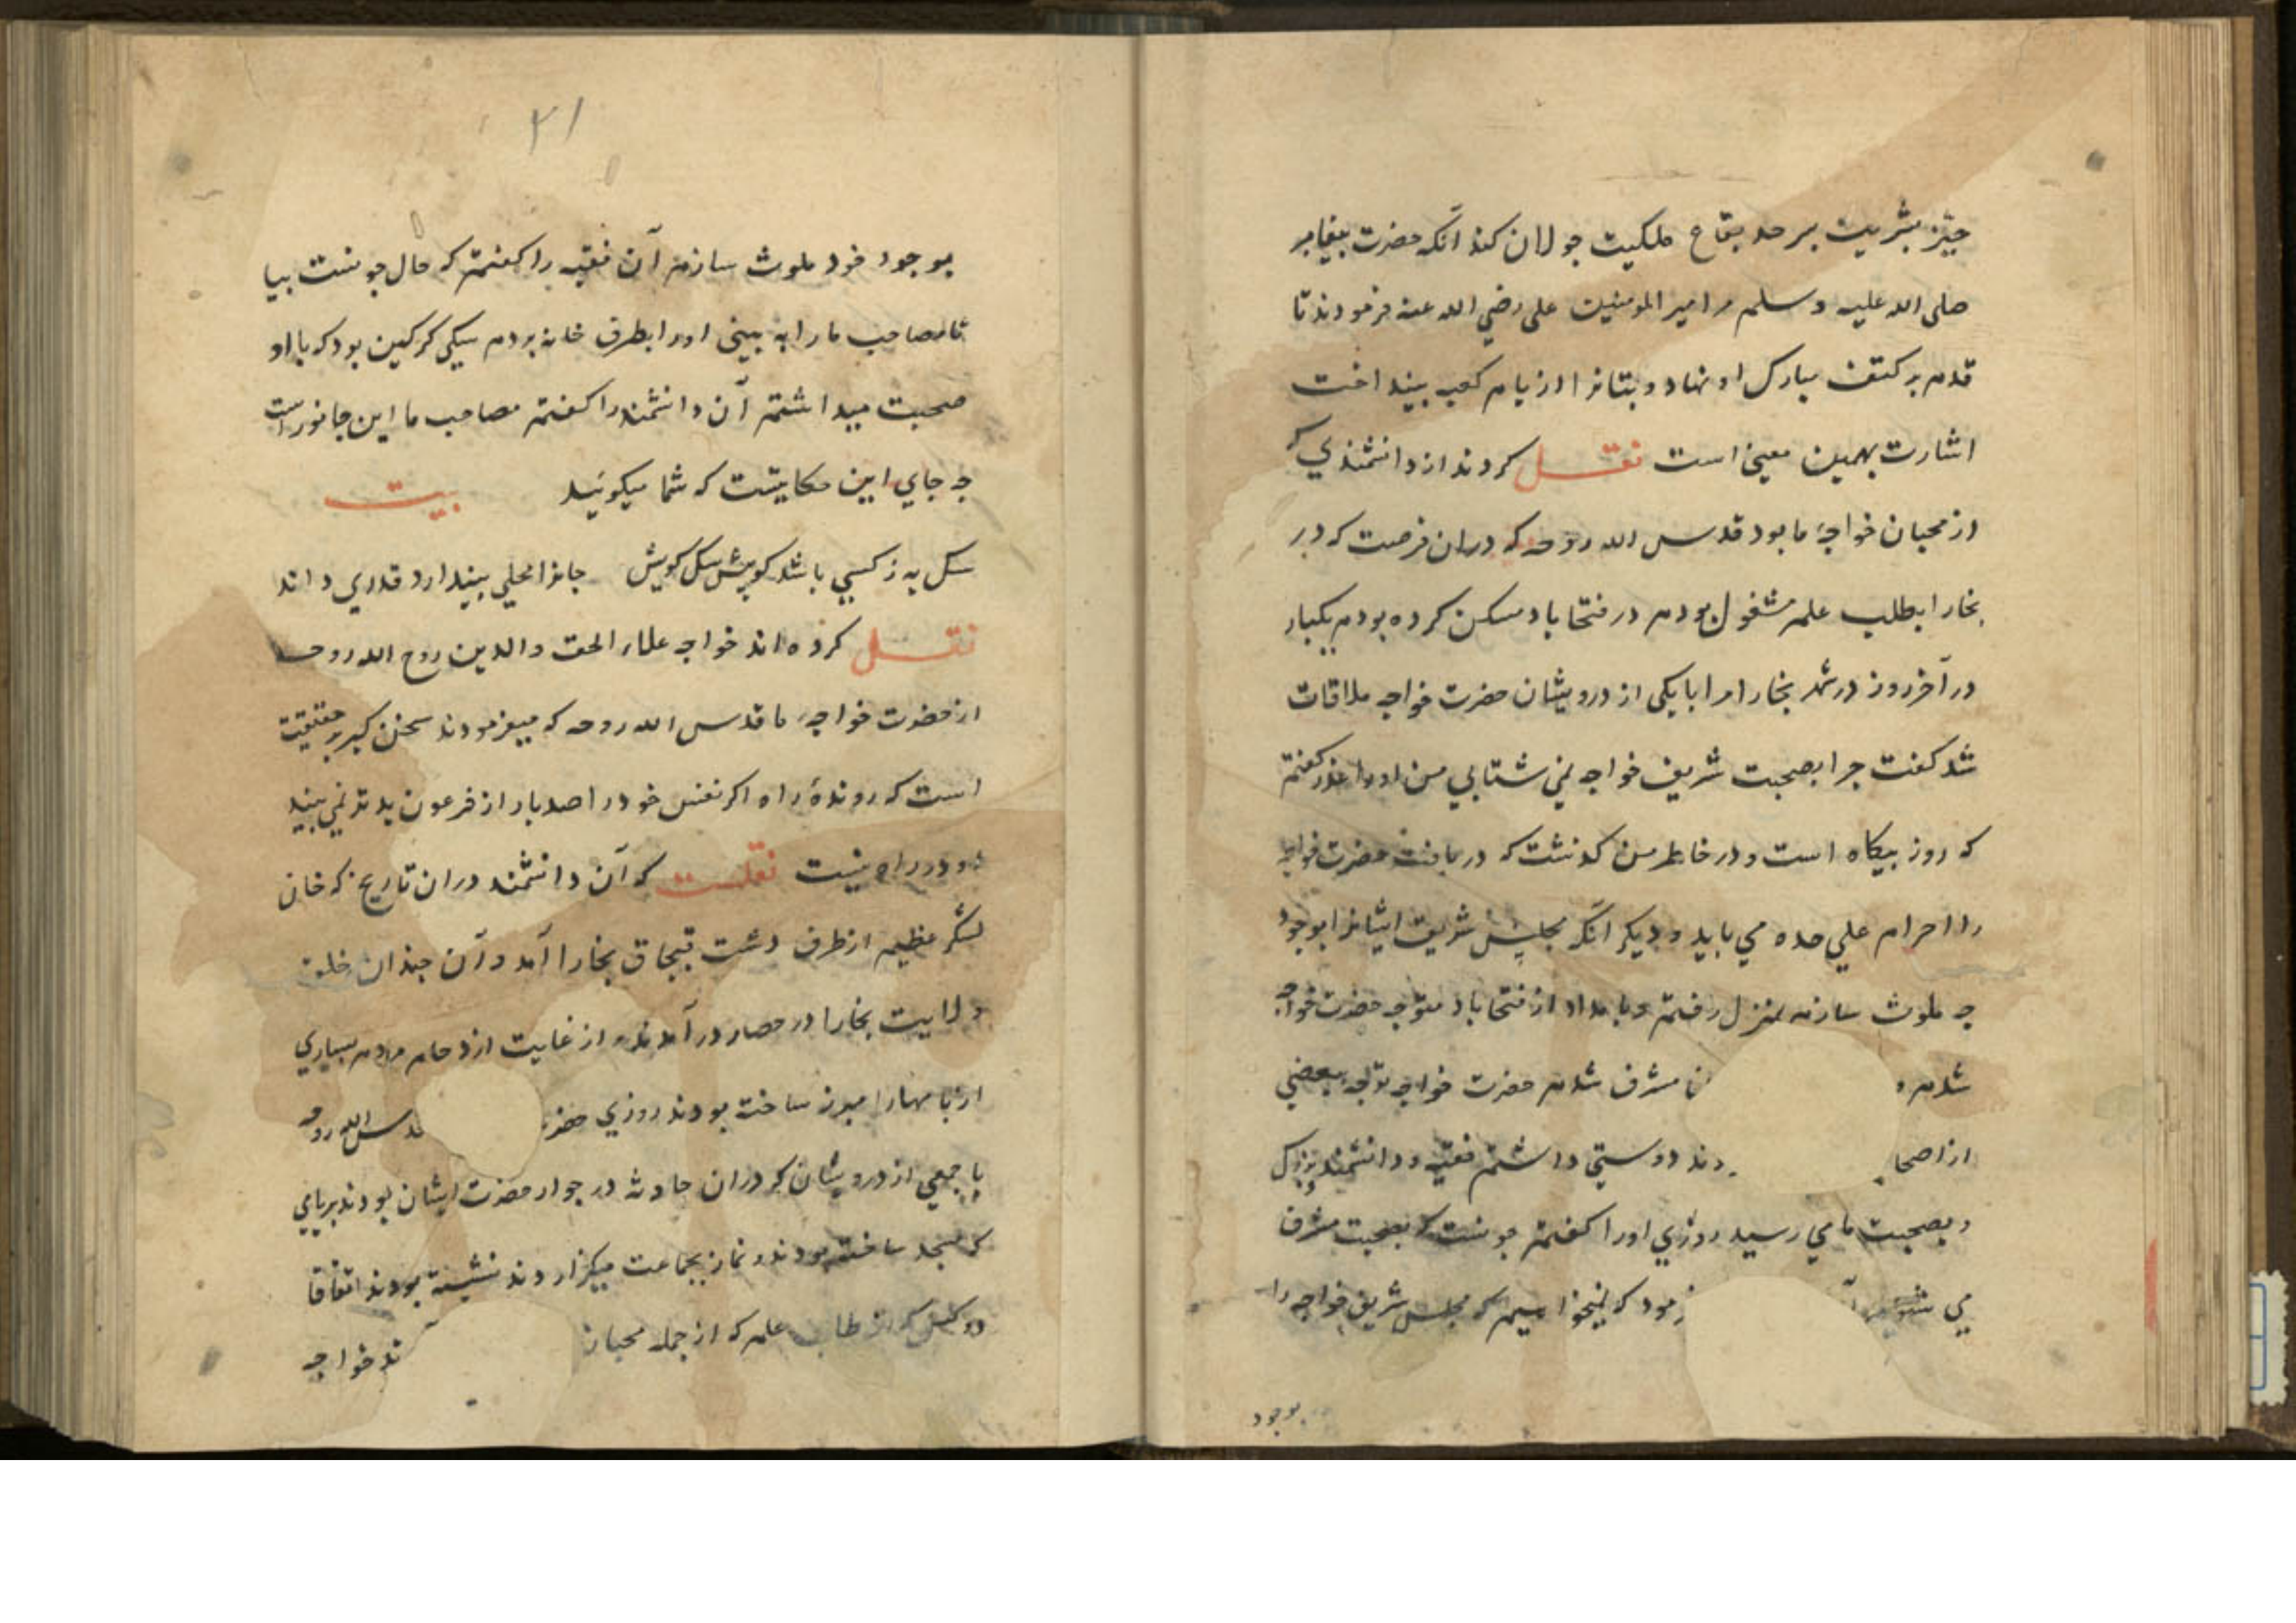 حیز بشریت بر حد بقاع ملکیت جولان کند آنکه حضرت پیغامبر
صلی الله علیه وسلم مر امیر المومنین علی رضی الله عنه فرمودند تا
قدم بر کتف مبارک او نهاد و بتانرا از بام کعبه بینداخت
اشارت بهمین معنی است نقل کردند از دانشمندی که
از محبان خواجهٔ ما بود قدس الله روحه که دران فرصت که در
بخارا بطلب علم مشغول بودم در فتحاباد مسکن کرده بودم یکبار
در آخر روز در شهر بخارا مرا با یکی از درویشان حضرت خواجه ملاقات
شد کفت چرا بصحبت شریف خواجه نمی شتابی من اورا عذر کفتم
که روز بیکاه است و در خاطر من کذشت که دریافت حضرت خواجه
را احرام علی حده می باید و دیکر آنکه مجلس شریف ایشانرا بوجود
چه ملوث سازم بمنزل رفتم و بامداد از فتحاباد متوجه حضرت خواجه
شدم و مشرف شدم حضرت خواجه بعضی
از اصحا دوستی داشتم فقیه و دانشمند بزرک
و بصحبت ما می رسید روزی اورا کفتم چونست که بصحبت مشرف
می که نمیخواهیم که مجلس شریف خواجه را
بوجود
۲۱
بوجود خود ملوث سازم آن فقیه را کفتم که حال چونست بیا
تا مصاحب ما را به بینی اورا بطرف خانه بردم سکی کرکین بود که با او
صحبت میداشتم آن دانشمند را کفتم مصاحب ما این جانورست
چه جای این حکایتست که شما میکوئید بیت
سک به ز کسی باشد کو پیش سک کویش جانرا محلی بیند ارد قدری داند
نقل کرده اند خواجه علاء الحق والدین روح الله روحه
از حضرت خواجهٔ ما قدس الله روحه که میفرمودند سخن کبرِ حقیقت
است که روندهٔ راه اکر نفس خود را صد بار از فرعون بدتر نمی بیند
او در راه نیست نقلست که آن دانشمند دران تاریخ که خان
لشکر عظیم از طرف دشت قبچاق بخارا آمد و آن چندان خلق
ولایت بخارا در حصار در آمدند و از غایت ازدحام مردم بسیاری
از بامهارا مبرز ساخته بودند روزی س الله روحه
با جمعی از درویشان که دران حادثه در جوار حضرت ایشان بودند بر بامی
که مسجد ساخته بودند و نماز بجماعت میکزاردند نشسته بودند اتفاقا
دو کس که از طلاب علم که از جمله محبان ند خواجه